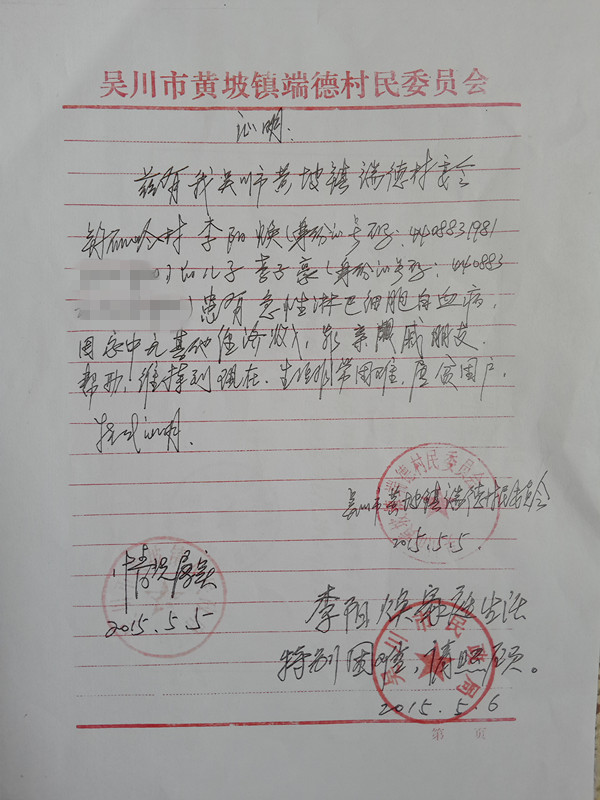 吴川市黄坡镇端德村民委员会
证明:
兹有我吴川市黄坡镇端德村委会
村李阳焕(身份证号码:4408831981
)的儿子李子豪(身份证号码:440883
)患有急性淋巴细胞白血病,
因家中无其他经济收入,靠亲属戚朋友
帮助,维持到现在.生活非常困难,属贫困户,
特此证明.
吴川市黄坡镇端德村民委员会
2015.5.5.
情况属实
2015.5.5
李阳焕家庭生活
特别困难,请照顾。
吴川市民政局
2015.5.6
第 页